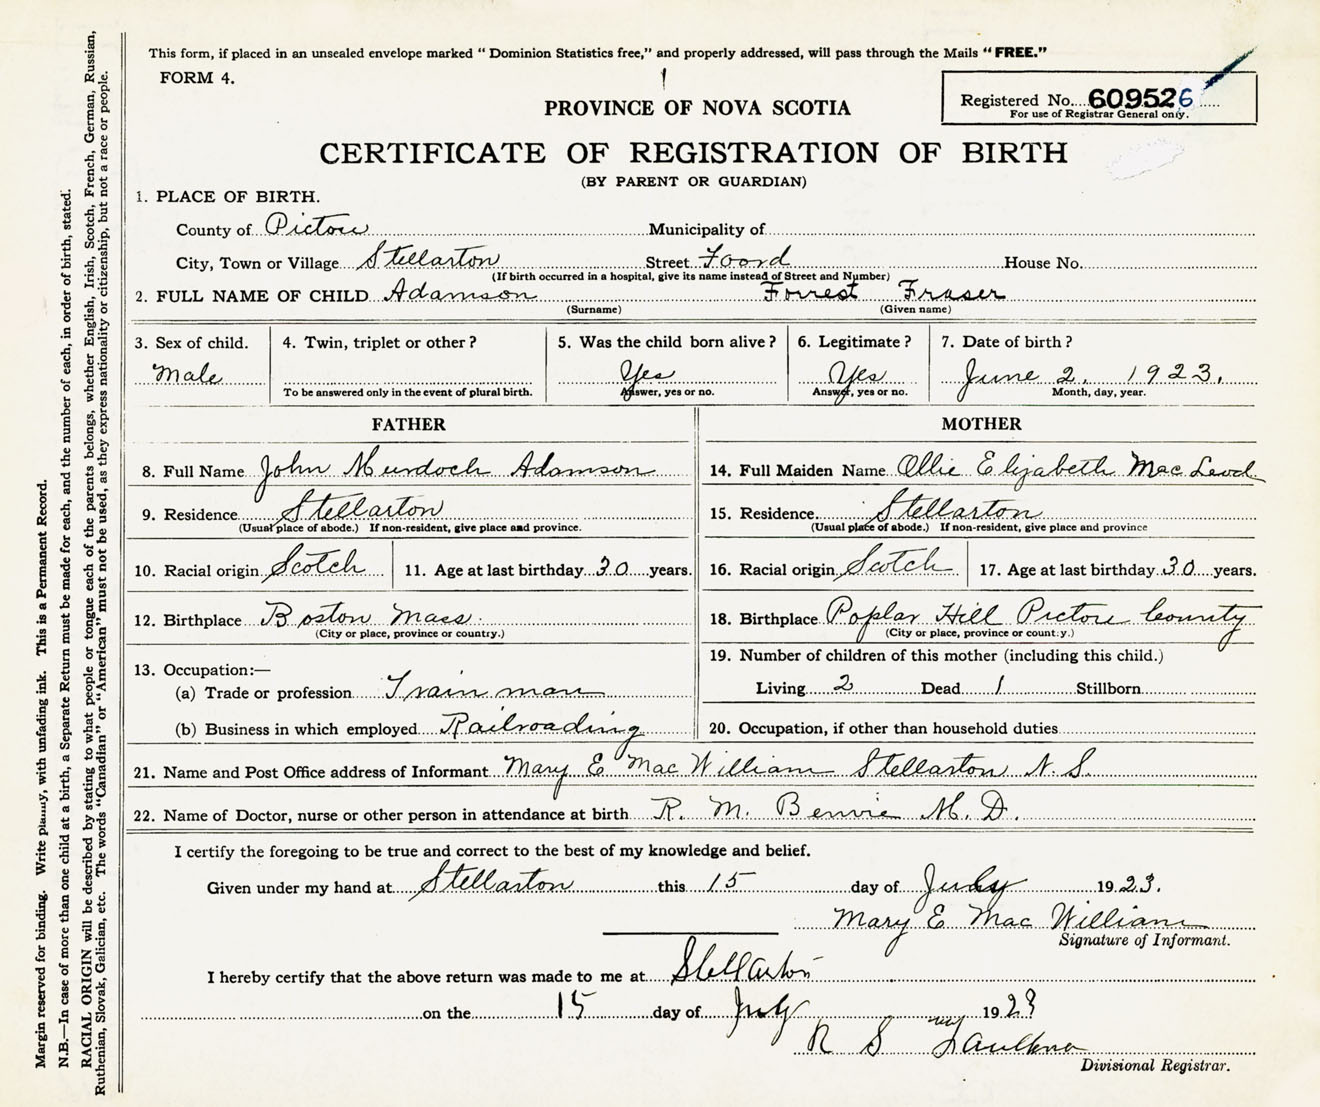 This form, if placed in an unsealed envelope marked "Dominion Statistics free," and properly addressed, will pass through the Mails "FREE."
FORM 4.
PROVINCE OF NOVA SCOTIA
Registered No. 609526
For use of Registrar General only.
CERTIFICATE OF REGISTRATION OF BIRTH
(BY PARENT OR GUARDIAN)
1. PLACE OF BIRTH.
County of Pictou Municipality of
City, Town or Village Stellarton Street Foord House No.
(If birth occurred in a hospital, give its name instead of Street and Number)
2. FULL NAME OF CHILD Adamson Forrest Fraser
(Surname) (Given name)
3. Sex of child. 4. Twin, triplet or other? 5. Was the child born alive? 6. Legitimate? 7. Date of birth?
Male Yes Yes June 2. 1923.
To be answered only in the event of plural birth. Answer, yes or no. Answer, yes or no. Month, day, year.
FATHER MOTHER
8. Full Name John Murdoch Adamson 14. Full Maiden Name Ollie Elizabeth Mac Leod
9. Residence Stellarton 15. Residence. Stellarton
(Usual place of abode.) If non-resident, give place and province. (Usual place of abode.) If non-resident, give place and province
10. Racial origin Scotch 11. Age at last birthday 30 years. 16. Racial origin Scotch 17. Age at last birthday 30 years.
12. Birthplace Boston Mass. 18. Birthplace Poplar Hill Pictou County
(City or place, province or country.) (City or place, province or country.)
13. Occupation:— 19. Number of children of this mother (including this child.)
(a) Trade or profession Train man Living 2 Dead 1 Stillborn
(b) Business in which employed Railroading 20. Occupation, if other than household duties
21. Name and Post Office address of Informant Mary E Mac William Stellarton N. S.
22. Name of Doctor, nurse or other person in attendance at birth R. M. Benvie M. D.
I certify the foregoing to be true and correct to the best of my knowledge and belief.
Given under my hand at Stellarton this 15 day of July 1923.
Mary E Mac William
Signature of Informant.
I hereby certify that the above return was made to me at Stellarton
on the 15 day of July 1923
R S
Divisional Registrar.
Margin reserved for binding. Write plainly, with unfading ink. This is a Permanent Record.
N.B.—In case of more than one child at a birth, a Separate Return must be made for each, and the number of each, in order of birth, stated.
RACIAL ORIGIN will be described by stating to what people or tongue each of the parents belongs, whether English, Irish, Scotch, French, German, Russian,
Ruthenian, Slovak, Galician, etc. The words "Canadian" or "American" must not be used, as they express nationality or citizenship, but not a race or people.